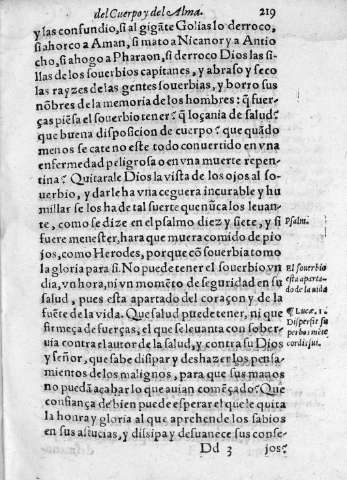 del Cuerpo y del Alma.
219
y las confundio, si al gigãte Golias lo derroco,
si ahorco a Aman, si mato a Nicanor y a Antio
cho, si ahogo a Pharaon, si derroco Dios las si-
llas de los souerbios capitanes, y abraso y seco
las rayzes de las gentes souerbias, y borro sus
nõbres de la memoria de los hombres: q̃ fuer-
ças piẽsa el souerbio tener? q̃ loçania de salud?
que buena disposicion de cuerpo? que quãdo
menos se cate no este todo conuertido en vna
enfermedad peligrosa o en vna muerte repen-
tina? Quitarale Dios la vista de los ojos al so-
uerbio, y darle ha vna ceguera incurable y hu
millar se los ha de tal suerte que nũca los leuan-
te, como se dize en el psalmo diez y siete, y si
fuere menester, hara que muera comido de pio
jos, como Herodes, porque cõ souerbia tomo
la gloria para si. No puede tener el souerbio vn
dia, vn hora, ni vn momẽto de seguridad en su
salud, pues esta apartado del coraçon y de la
fuẽte de la vida. Que salud puede tener, ni que
firmeça de fuerças, el que se leuanta con sober-
uia contra el autor de la salud, y contra su Dios
y señor, que sabe disipar y deshazer los pensa-
mientos de los malignos, para que sus manos
no puedã acabar lo que auian començado? Que
confiança de bien puede esperar el que le quita
la honra y gloria al que aprehende los sabios
en sus astucias, y dissipa y desuanece sus conse-
Dd 3
jos?
Psalm.
El souerbio
esta aparta-
do de la vida
¶ Lucæ. 1.
Dispersit su
perbos mẽte
cordis sui.